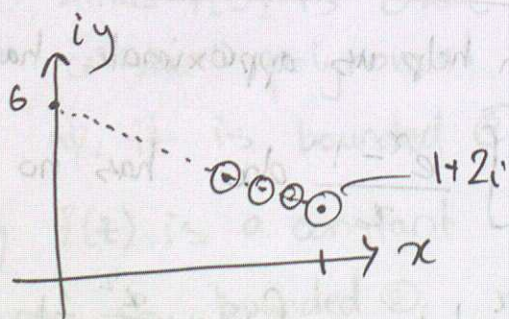 iy
6
1+2i
x